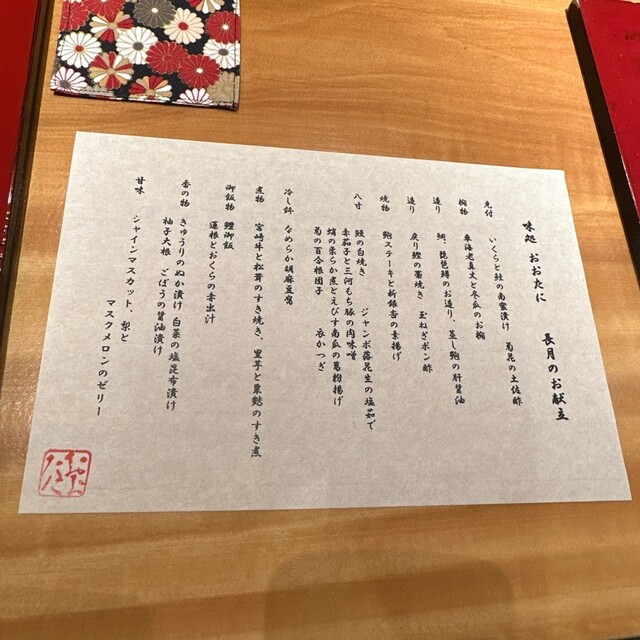 味処 おおたに 長月のお献立
先付 いくらと鮭の南蛮漬け 菊花の土佐酢
椀物 車海老真丈と冬瓜のお椀
造り 鯛、琵琶鱒のお造り、蒸し鮑の肝醤油
造り 戻り鰹の藁焼き 玉ねぎポン酢
焼物 鮑ステーキと新銀杏の素揚げ
八寸 鰻の白焼き ジャンボ落花生の塩茹で
赤茄子と三河もち豚の肉味噌
蛸の柔らか煮とえびす南瓜の葛粉揚げ
菊の百合根団子 衣かつぎ
冷し鉢 なめらか胡麻豆腐
煮物 宮崎牛と松茸のすき焼き、里芋と粟麩のすき煮
御飯物 鱧御飯
蓮根とおくらの赤出汁
香の物 きゅうりのぬか漬け 白菜の塩昆布漬け
柚子大根 ごぼうの醤油漬け
甘味 シャインマスカット、梨と
マスクメロンのゼリー